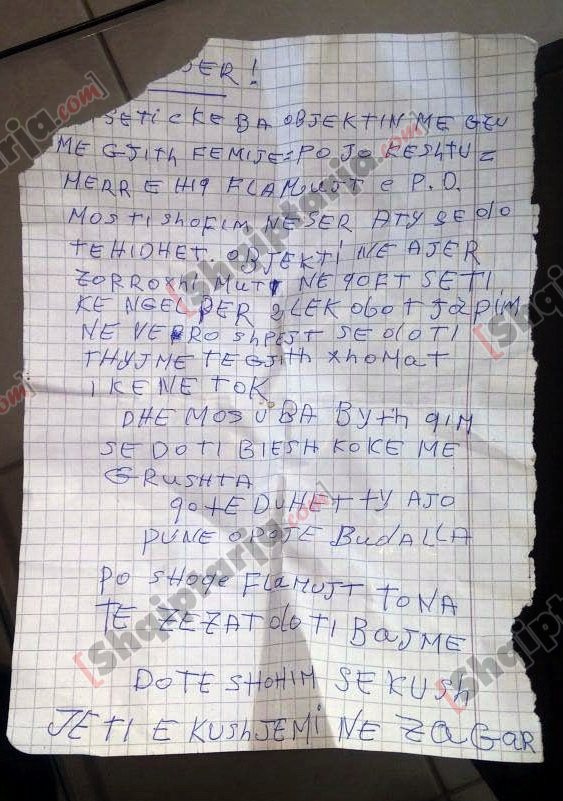 DER!
SETI CKE BA OBJEKTIN ME GZU
ME GJITH FEMIJE: PO JO KESHTU =
MERR E HIQ FLAMUJT E P.D.
MOS TI SHOFIM NESER ATY SE DO
TE HIDHET OBJEKTI NE AJER
ZORROXHI MUTI NE QOFT SE TI
KE NGEL PER 2 LEK DO T JAPIM
NE VERRO SHPEJT SE DO TI
THYJME TE GJITH XHOMAT
I KE NE TOK
DHE MOS U BA BYTHQIM
SE DO TI BIESH KOKE ME
GRUSHTA
QOTE DUHET TY AJO
PUNE OPOJE BUDALLA
PO SHOQE FLAMUJT TONA
TE ZEZAT DO TI BAJME
DO TE SHOHIM SE KUSH
JE TI E KUSH JEMI NE ZAGAR
[Shqiptarja.com]